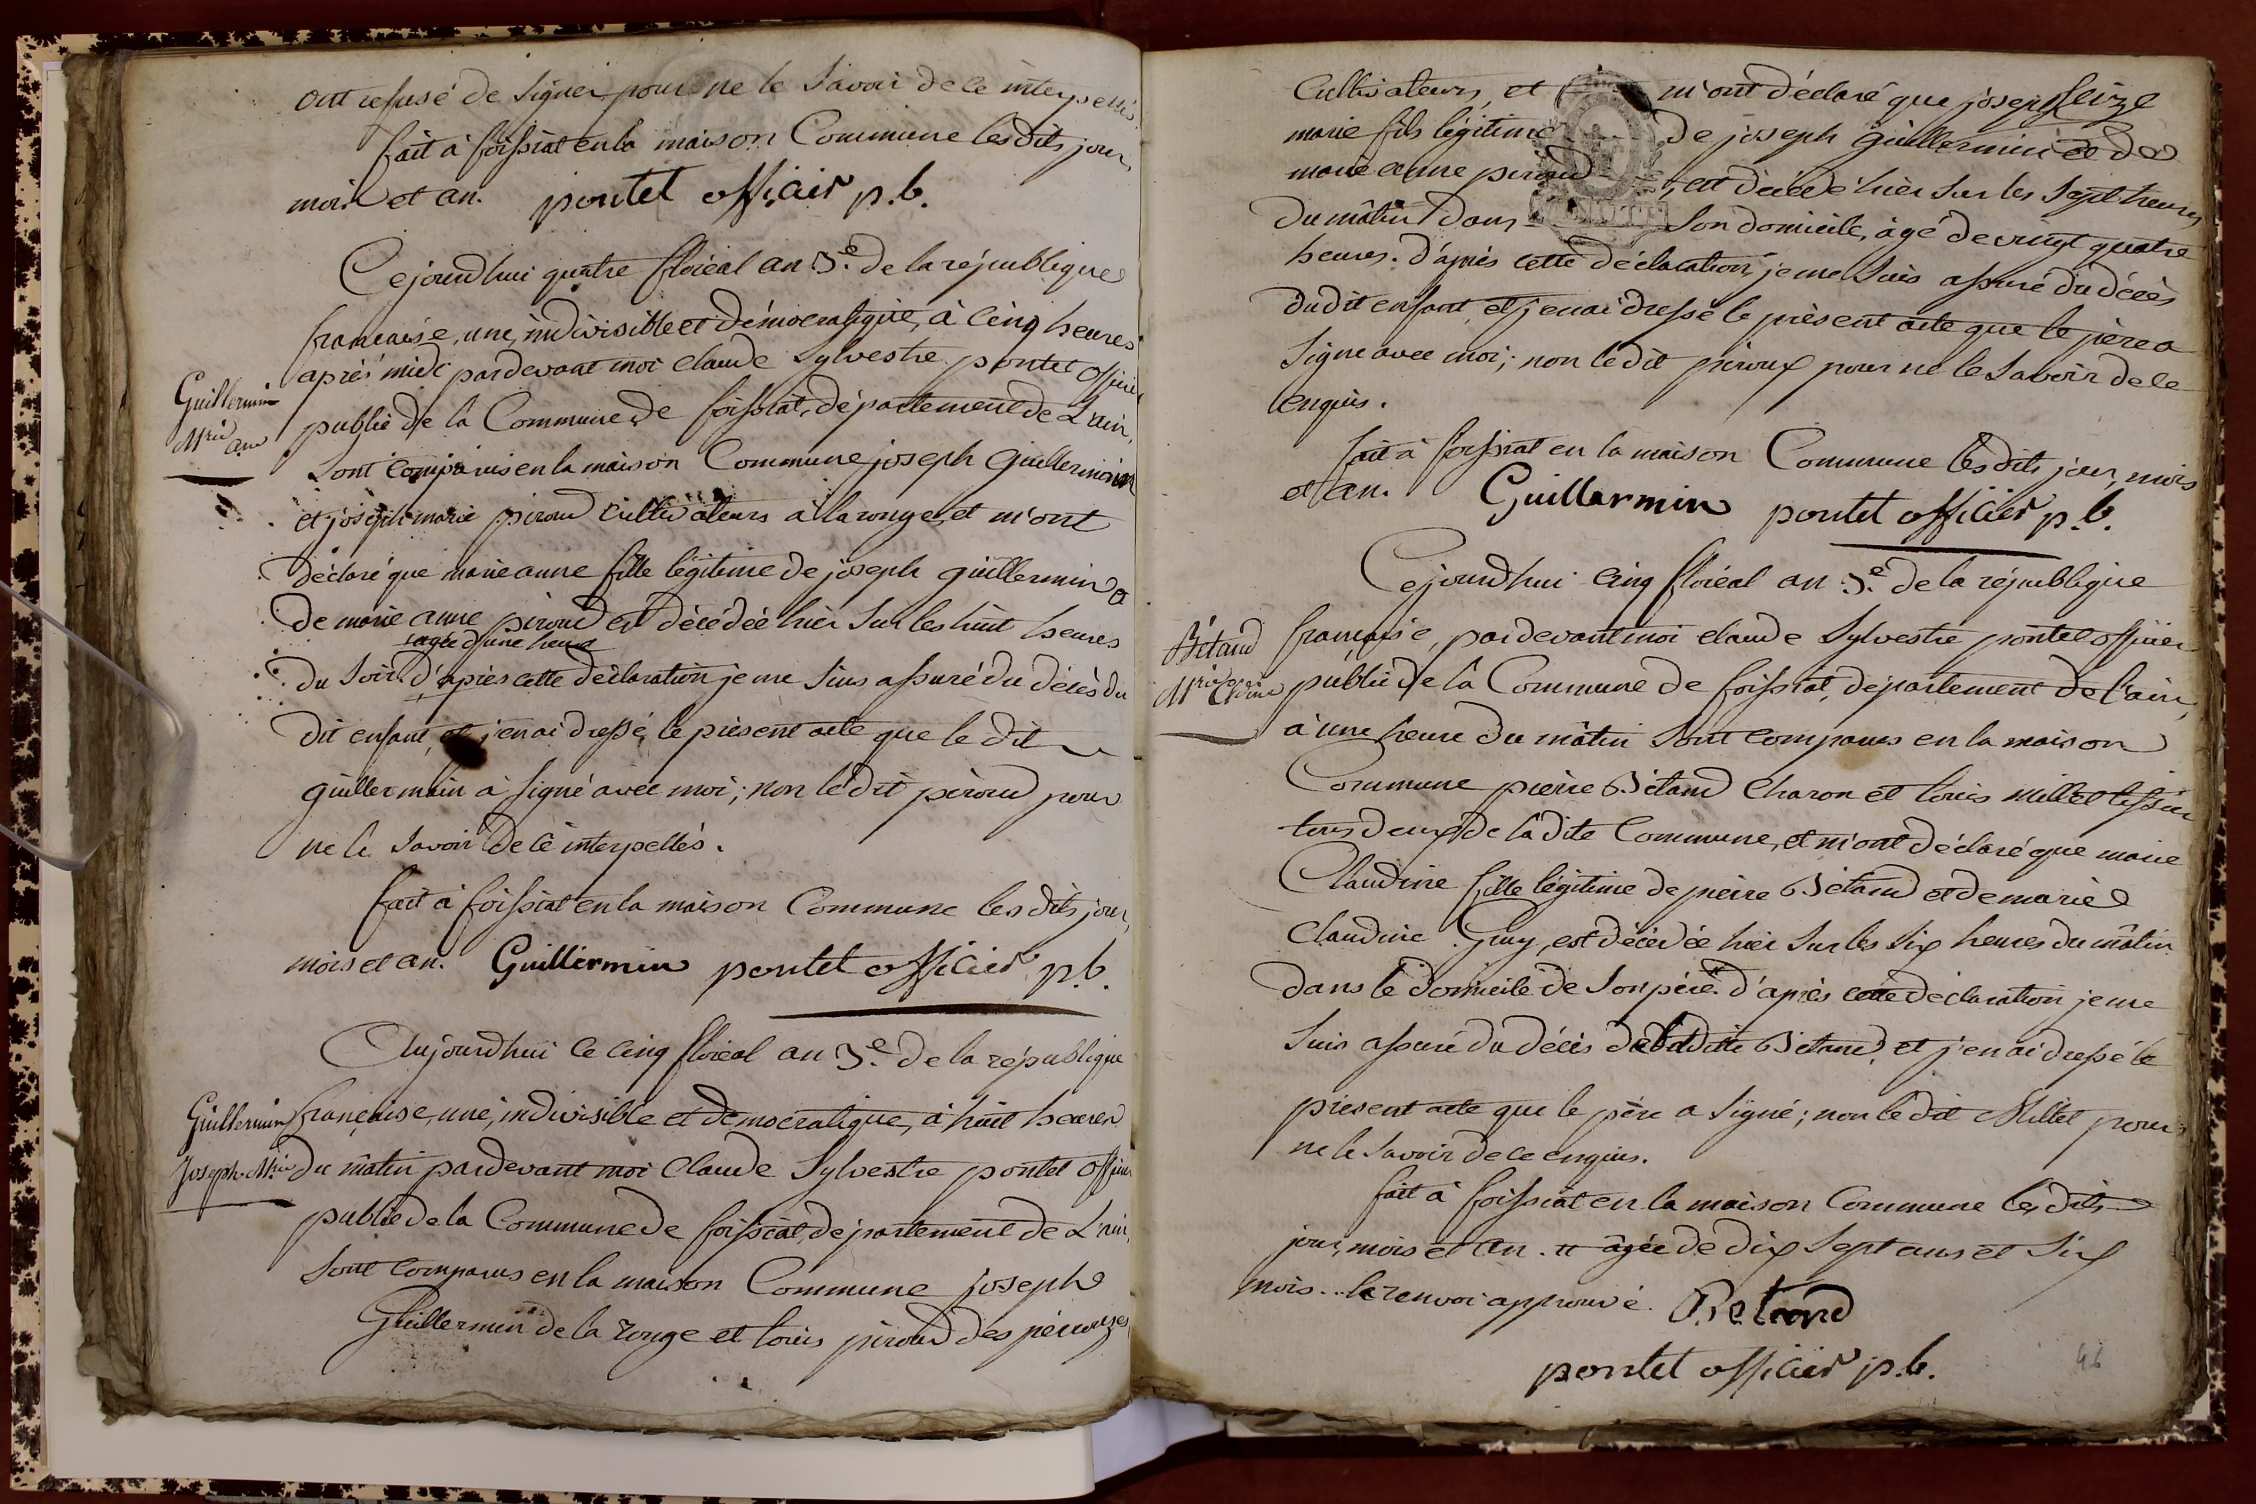 ont refusé de signer pour ne le savoir de ce interpellés.
fait à foissiat en la maison Commune les dits jour,
mois et an. pontet officier p.b.
Cejourdhui quatre floréal an 3e. de la république
française, une, indivisible et démocratique, à cinq heures
après midi pardevant moi claude Sylvestre pontet officier
Guillermin
Mrie ane
public de la Commune de foissiat, département de L'ain,
sont comparus en la maison Commune joseph Guillermin
et joseph marie piroud cultivateurs à la rouge, et m'ont
déclaré que marie anne fille légitime de joseph guillermin &
de marie anne piroud est décédée hier sur les huit heures
agée d'une heure
du soir. d'après cette déclaration je me suis assuré du décès du
dit enfant, et j'en ai dressé le présent acte que le dit
guillermin à signé avec moi; non le dit piroud pour
ne le savoir de ce interpellés.
fait à foissiat en la maison Commune les dits jour,
mois et an. Guillermin pontet officier p.b.
Aujourdhui ce cinq floréal an 3e. de la république
Guillermin
Joseph Mrie
française, une, indivisible et démocratique, à huit heures
du mâtin pardevant moi Claude Sylvestre pontet officier
public de la Commune de foissiat, département de L'ain,
sont comparus en la maison Commune joseph
Guillermin de la rouge et louis piroud des
cultivateurs, et m'ont déclaré que joseph
marie fils légitime de joseph guillermin et de
marie anne piroud, est décédé hièr sur les sept heures
du mâtin dans son domicile, âgé de vingt quatre
heures. d'après cette déclaration, je me suis assuré du décès
dudit enfant, et j'en ai dressé le présent acte que le père a
signé avec moi; non le dit piroux pour ne le savoir de ce
enquis.
fait à foissiat en la maison Commune les dits jour, mois
et an. Guillermin pontet officier p.b.
Cejourdhui cinq floréal an 3e. de la république
Bétand
Mrie Cdine
française, pardevant moi claude Sylvestre pontet officier
public de la Commune de foissiat, département de l'ain,
à une heure du mâtin sont comparus en la maison
Commune pierre Bétand charon et louis Millet tissier
tous deux de la dite Commune, et m'ont déclaré que marie
Claudine fille légitime de pierre Bétand et de marie
Claudine Guy, est décédée hier sur les six heures du mâtin
dans le domicile de son père. d'après cette déclaration je me
suis assuré du décès de la ditte Bétand, et j'en ai dressé le
présent acte que le père a signé; non le dit Millet pour
ne le savoir de ce enquis.
fait à foissiat en la maison Commune les dits
jour, mois et an. âgée de dix sept ans et six
mois... le renvoi approuvé. Betand
pontet officier p.b.
46